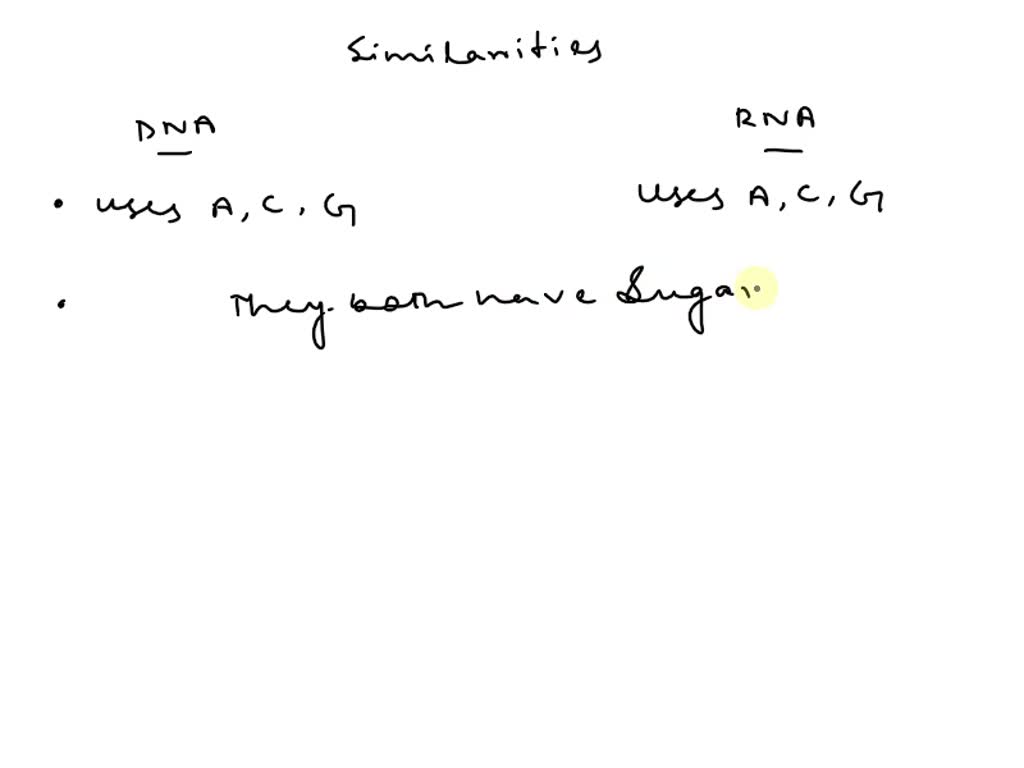 Similarities
DNA RNA
• uses A, C, G uses A, C, G
• They both have Sugar